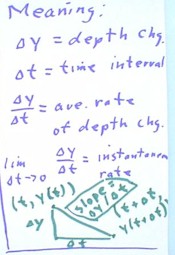 Meaning:
ΔY = depth chg.
Δt = time interval
ΔY/Δt = ave. rate
of depth chg.
lim Δt→0 ΔY/Δt = instantaneous
rate
(t, Y(t))
slope = ΔY/Δt
ΔY
(t+Δt,
Y(t+Δt))
Δt